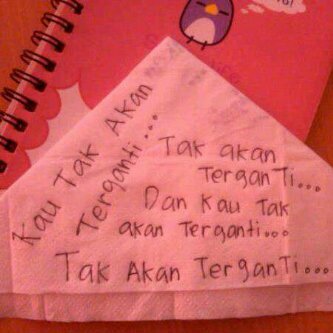 Kau Tak Akan
Terganti...
Tak akan
TerganTi...
Dan Kau Tak
akan Terganti...
Tak Akan TerganTi...